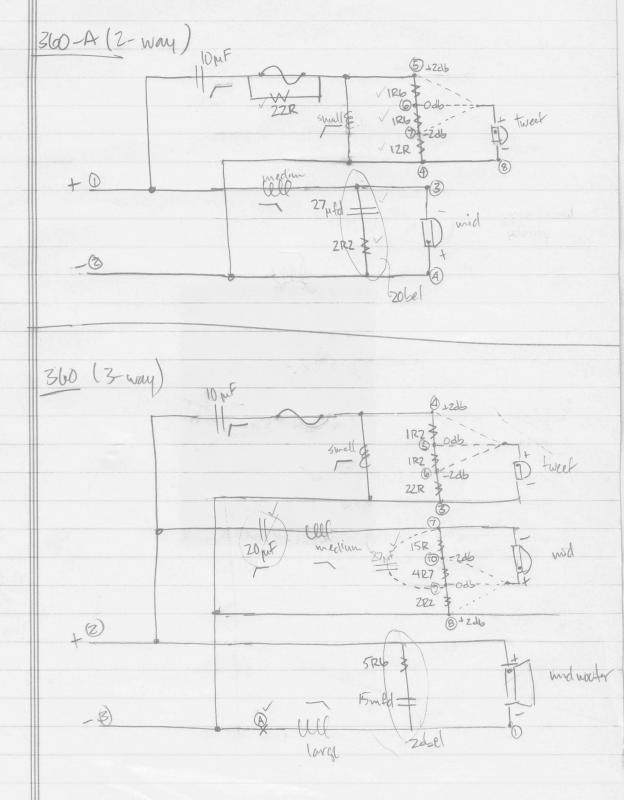 360-A (2-way)
10µF
⑤ +2db
22R
1R6
⑥ 0db
small
1R6
⑦ -2db
tweet
+
-
12R
④
⑧
+ ①
medium
③
27 µfd
mid
-
+
2R2
- ②
④
Zobel
360 (3-way)
10µF
④ +2db
1R2
⑤ 0db
small
1R2
⑥ -2db
tweet
+
-
22R
⑦
20µF
medium
15R
⑩ -2db
mid
-
+
4R7
0db
2R2
⑧ +2db
+ ②
5R6
+
-
15mfd
- ③
Ⓐ
large
Zobel
①